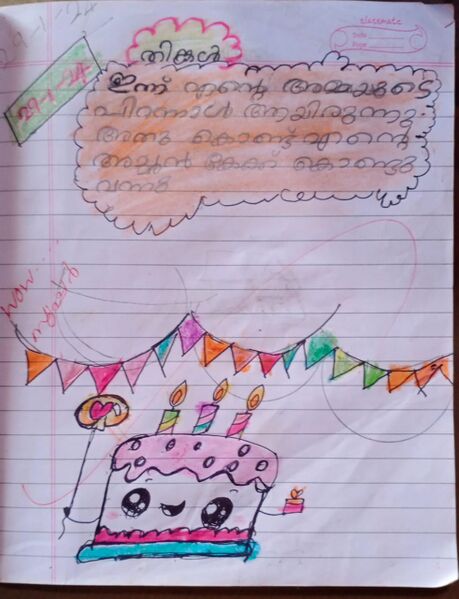 classmate
Date
Page
29-1-24
29-1-24
തിങ്കൾ
ഇന്ന് എന്റെ അമ്മയുടെ
പിറന്നാൾ ആയിരുന്നു.
അതു കൊണ്ട് എന്റെ
അച്ഛൻ കേക്ക് കൊണ്ടു
വന്നു
wow....